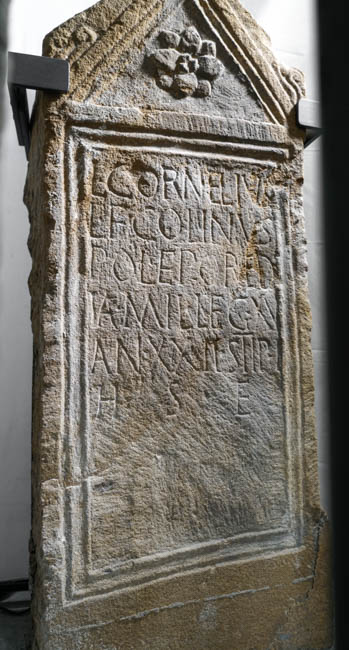 L CORNELIVS
L F COLINVS
POL EPORED
IA MIL LEG XV
AN XX STIP
H S E